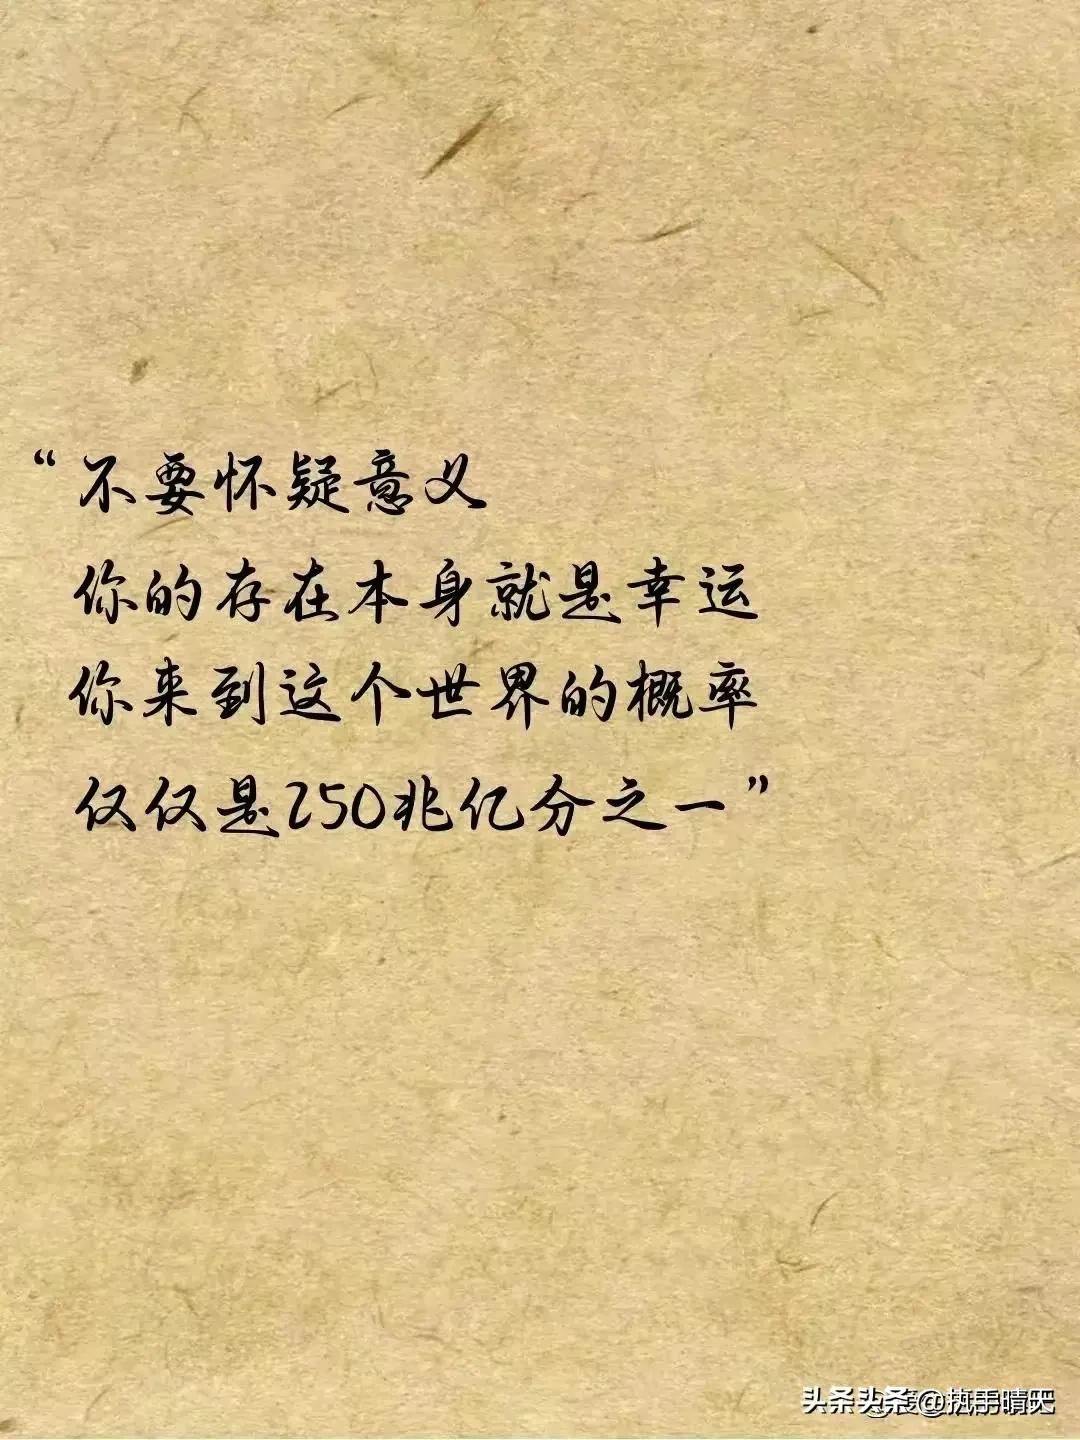 “不要怀疑意义
你的存在本身就是幸运
你来到这个世界的概率
仅仅是250兆亿分之一”
头条 @执手晴天